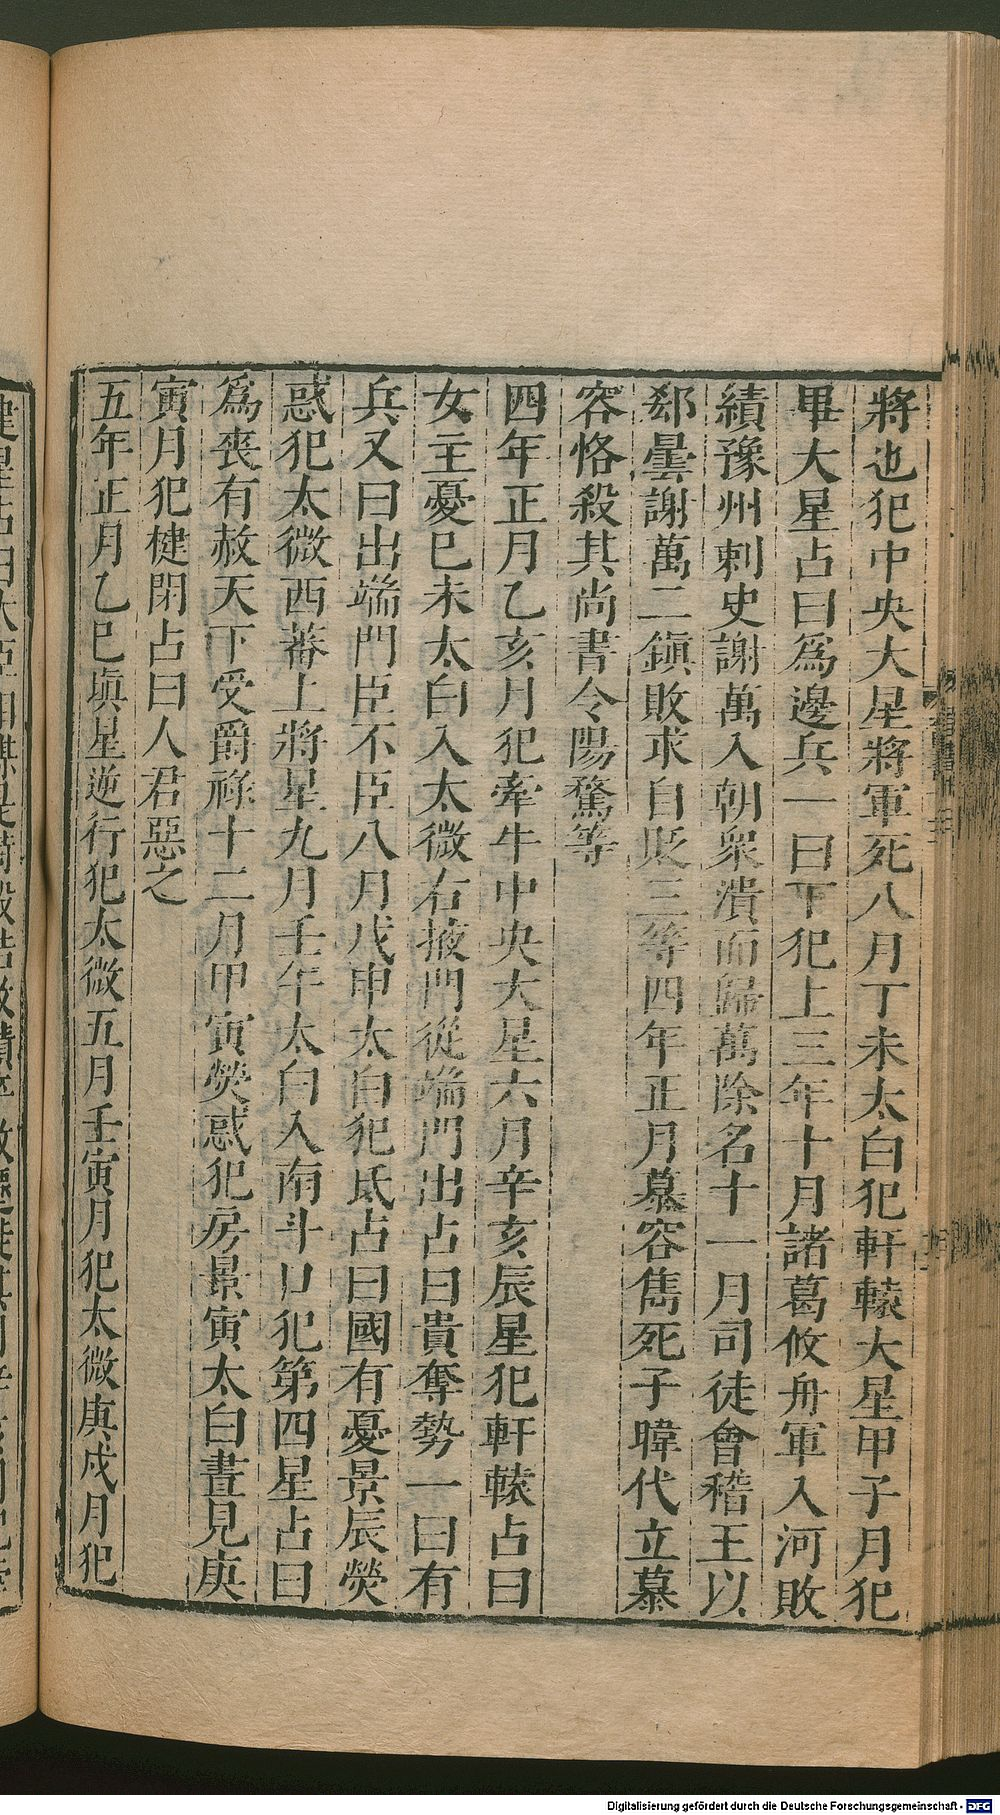 將也犯中央大星將軍死八月丁未太白犯軒轅大星甲子月犯
畢大星占曰爲邊兵一曰下犯上三年十月諸葛攸舟軍入河敗
績豫州刺史謝萬入朝衆潰而歸萬除名十一月司徒會稽王以
郄曇謝萬二鎭敗求自貶三等四年正月慕容雋死子暐代立慕
容恪殺其尚書令陽騖等
四年正月乙亥月犯牽牛中央大星六月辛亥辰星犯軒轅占曰
女主憂巳未太白入太微右掖門從端門出占曰貴奪勢一曰有
兵又曰出端門臣不臣八月戊申太白犯氐占曰國有憂景辰熒
惑犯太微西蕃上將星九月壬午太白入南斗口犯第四星占曰
爲喪有赦天下受爵祿十二月甲寅熒惑犯房景寅太白晝見庚
寅月犯楗閉占曰人君惡之
五年正月乙巳塡星逆行犯太微五月壬寅月犯太微庚戌月犯
Digitalisierung gefördert durch die Deutsche Forschungsgemeinschaft - DFG